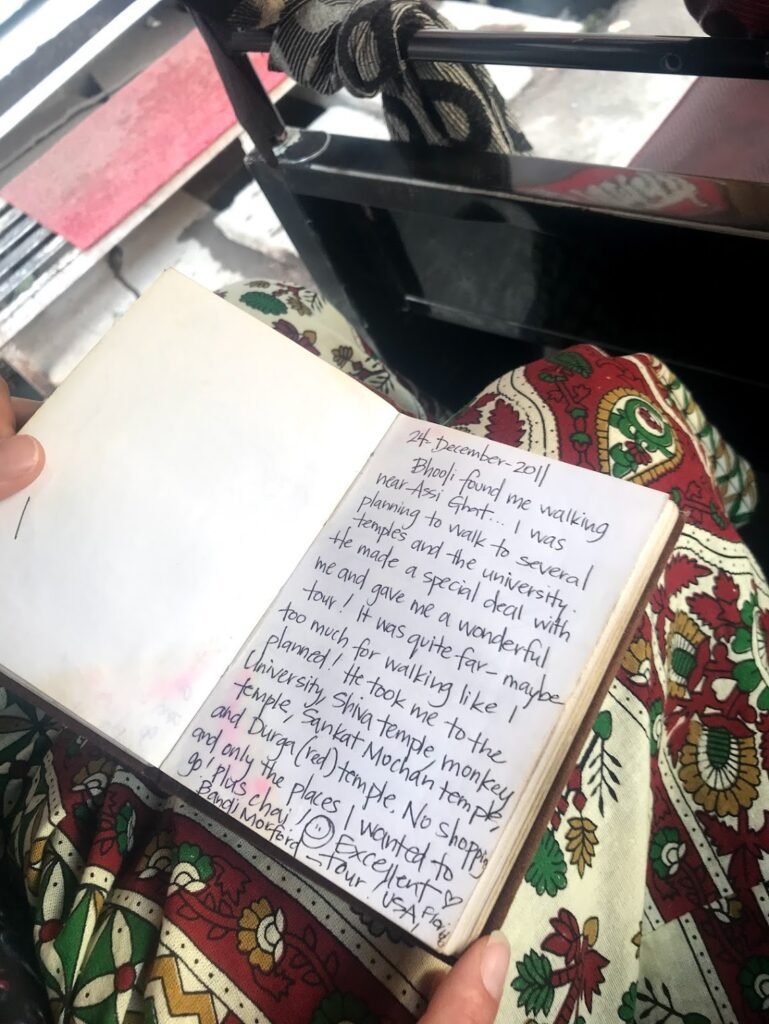 24-December-2011
Bhooli found me walking
near Assi Ghat... I was
planning to walk to several
temples and the university.
He made a special deal with
me and gave me a wonderful
tour! It was quite far - maybe
too much for walking like I
planned! He took me to the
University, Shiva temple, monkey
temple, Sankat Mochan temple,
and Durga (red) temple. No shopping
and only the places I wanted to
go! plus chai! ☺ Excellent ♡
Morford - tour. USA,